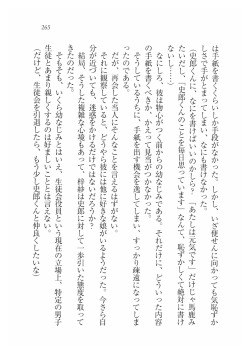 265
は手紙を書くくらいしか手段がなかった。しかし、いざ便せんに向かっても気恥ずか
しさで手がとまってしまい、なにも書けなかった。
（史郎くんに、なにを書けばいいのかしら？　「あたしは元気です」だけじゃ馬鹿み
たいだし、「史郎くんのことを毎日想っています」なんて、恥ずかしくて絶対に書け
ないし……
なにしろ、彼は物心がつく前からの幼なじみである。それだけに、どういった内容
の手紙を書くべきか、かえって見当がつかなかった。
そうしているうちに、手紙を出す機会を逃してしまい、すっかり疎遠になってしま
ったのである。
だが、再会した当人にそんなことを言えるはずがない。
それに観察していると、どうやら彼には他に好きな娘がいるようだった。今さら自
分が近づいても、迷惑をかけるだけではないだろうか？
結局、そうした複雑な心境もあって、梓紗は史郎に対して一歩引いた態度を取って
きたのだった。
そもそも、いくら幼なじみとはいえ、生徒会役員という現在の立場上、特定の男子
生徒とあまり親しくするのは好ましいこととは言えない。
（だけど、生徒会を引退したら、もう少し史郎くんと仲良くしたいな）